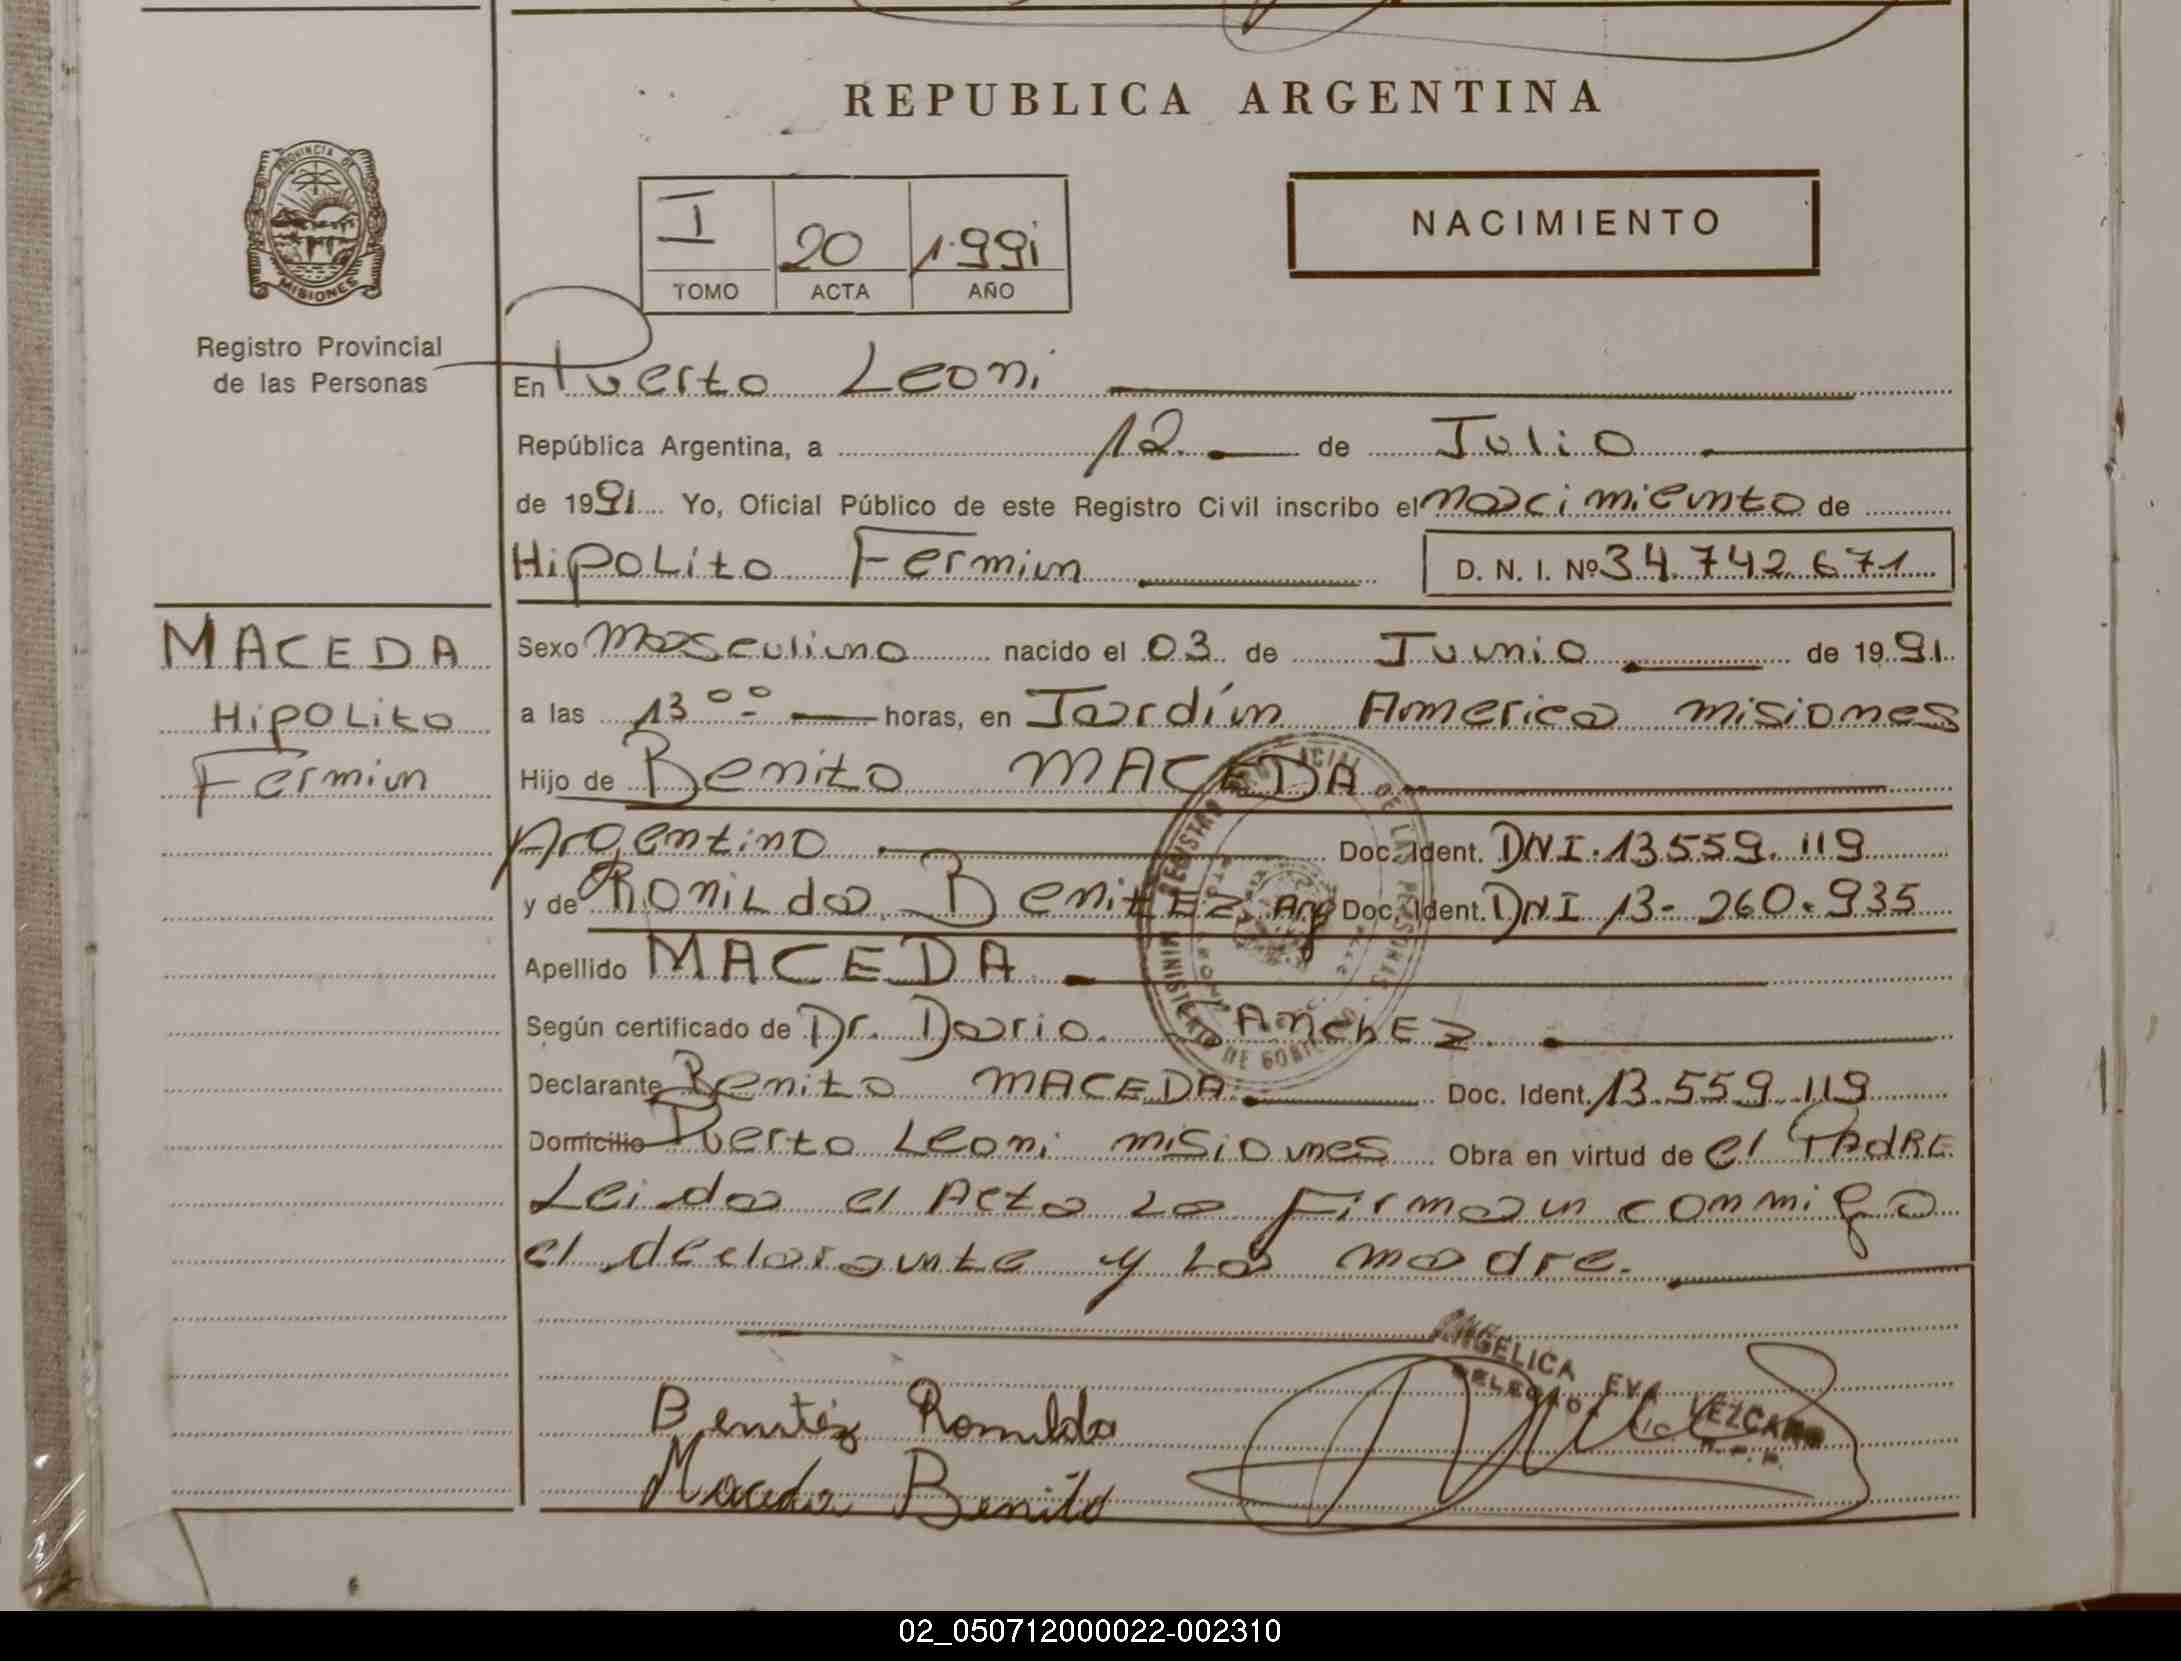 REPUBLICA ARGENTINA
PROVINCIA DE
MISIONES
Registro Provincial
de las Personas
NACIMIENTO
I 20 1991
TOMO ACTA AÑO
En Puerto Leoni
República Argentina, a 12 de Julio
de 1991 Yo, Oficial Público de este Registro Civil inscribo el nacimiento de
Hipolito Fermin D. N. I. Nº 34.742.671
MACEDA
Hipolito
Fermin
Sexo Masculino nacido el 03 de Junio de 1991
a las 13 00 horas, en Jardín America misiones
Hijo de Benito MACEDA
Argentino Doc. Ident. DNI. 13559.119
y de Romilda BenitEZ Arg Doc. Ident. DNI 13-260.935
Apellido MACEDA
Según certificado de Dr. Dario SAnchEZ
Declarante Benito MACEDA Doc. Ident. 13.559.119
Domicilio Puerto Leoni misiones Obra en virtud de el PAdRE
Leida el Acta La Firman conmigo
el declarante y La madre.
ANGELICA EVA VEZCA
DELEGADA
Benitez Romilda
Maceda Benito
02_050712000022-002310